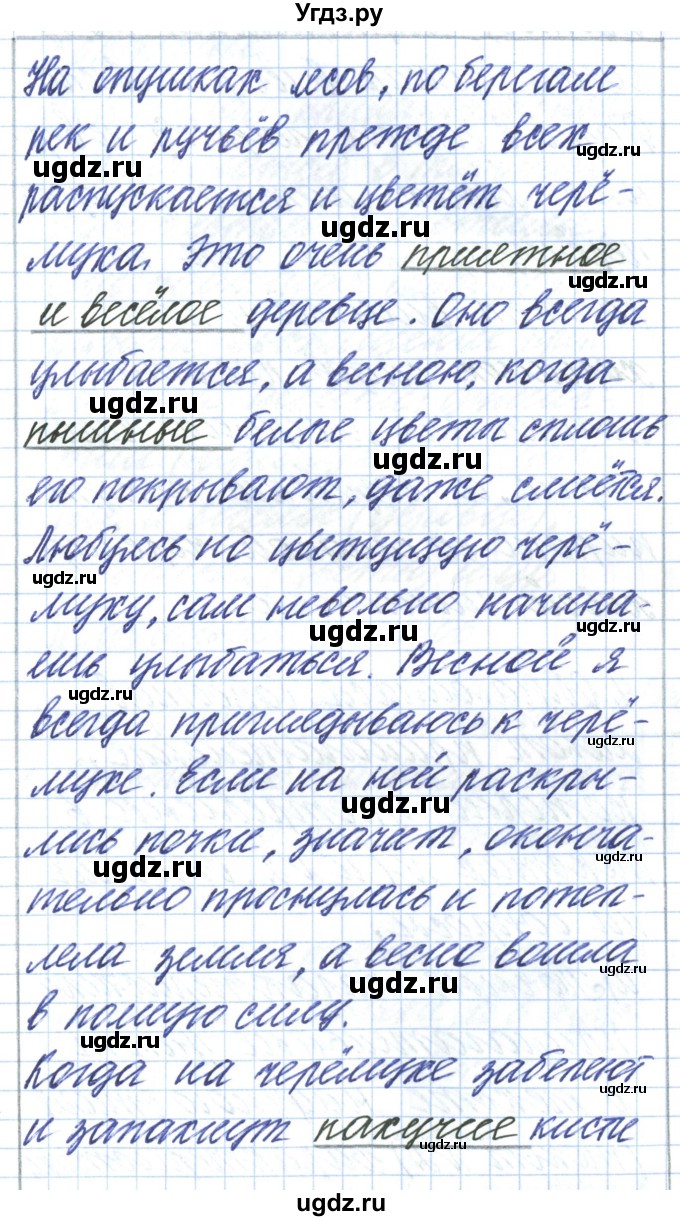 Угдз.ру
На опушках лесов, по берегам
рек и ручьёв прежде всех
ugdz.ru
ugdz.ru
распускается и цветёт черё-
ugdz.ru
муха. Это очень приятное
ugdz.ru
и весёлое деревце. Оно всегда
улыбается, а весною, когда
ugdz.ru
пышные белые цветы сплошь
ugdz.ru
его покрывают, даже смеётся.
Любуясь на цветущую черё-
ugdz.ru
муху, сам невольно начина-
ugdz.ru
ugdz.ru
ешь улыбаться. Весной я
ugdz.ru
всегда приглядываюсь к черё-
ugdz.ru
мухе. Если на ней раскры-
ugdz.ru
лись почки, значит, оконча-
ugdz.ru
ugdz.ru
тельно проснулась и потеп-
лела земля, а весна вошла
ugdz.ru
ugdz.ru
в полную силу.
ugdz.ru
Когда на черёмухе забелеют
ugdz.ru
и запахнут пахучие кисти
ugdz.ru
ugdz.ru